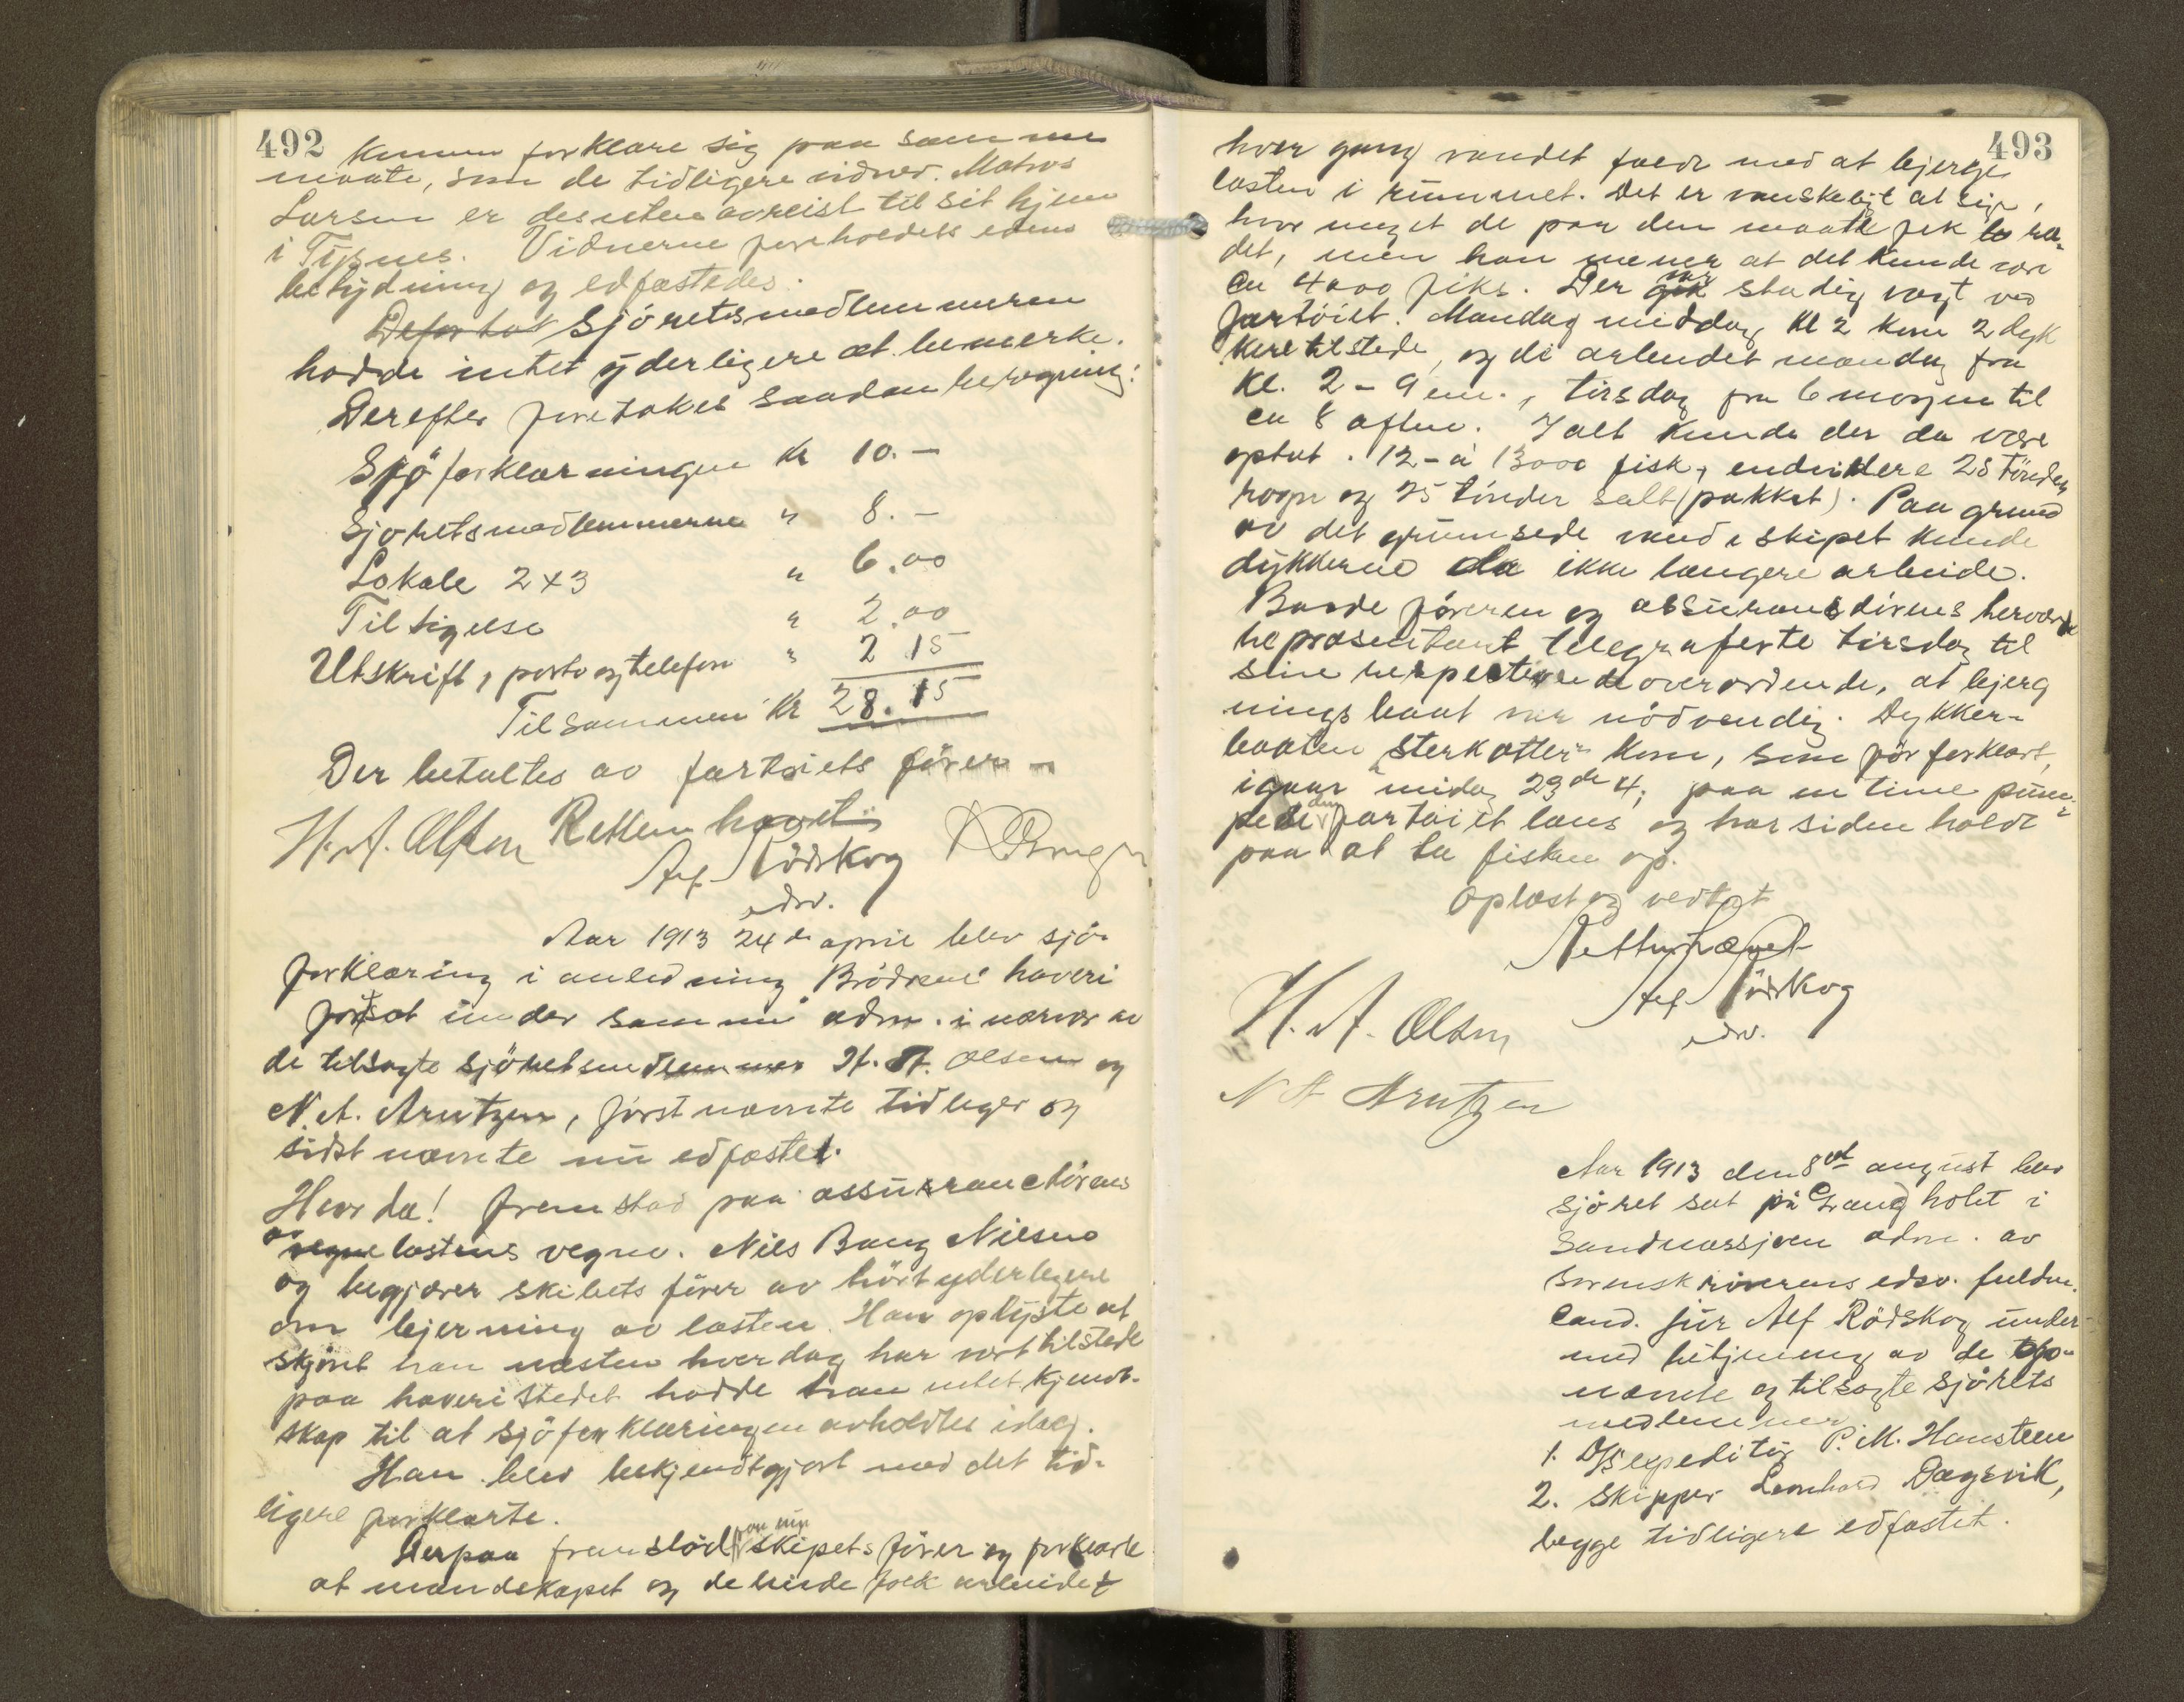 492
kunne forklare sig paa samme
maate, som de tidligere vidner. Matros
Larsen er desuten avreist til sit hjem
i Tysnes. Vidnerne foreholdets edens
betydning og edfæstedes.
Defor tok Sjøretsmedlemmeren
hadde intet yderligere at bemerke.
Derefter foretokes saadan beregning:
Sjøforklaringen Kr 10.-
Sjøretsmedlemmerne " 8.-
Lokale 2x3 " 6.00
Tilsigelse " 2.00
Utskrift, porto og telefon " 2.15
Tilsammen Kr 28.15
Der betaltes av fartøiets fører
H. A. Olsen Retten hævet.
Alf Rödskog
edsv.
Aar 1913 24de april blev sjø-
forklaring i anledning Brødrene's haveri
fortsat under samme adm. i nærvær av
de tilsagte sjøretsmedlemmer H. A. Olsen og
N. A. Arntzen, førstnævnte tidliger og
sidstnævnte nu edfæstet.
Hvorda! fremstod paa assurancdørens
og vegne lastens vegne. Nils Bang Nilsen
og begjærer skibets fører av hørt yderligere
om bjerning av lasten. Han oplyste at
skjønt han næsten hver dag har vært tilstede
paa haveristedet hadde han intet kjend-
skap til at sjøforklaringen avholdtes idag.
Han blev bekjendtgjort med det tid-
ligere forklarte.
Derpaa fremstod paa ny skipets fører og forklarte
at mandskapet og de leiede folk arbeidet
493
hver gang vandet faldt med at bjerge
lasten i rummet. Det er vanskeligt at sige,
hvor meget de paa den maate fik to ræ-
det, men han mener at det kunde være
ca 4000 fiks. Der gik var stadig vagt ved
fartøiet. Mandag middag kl 2 kom 2 dyk
kere tilstede, og de arbeidet mandag fra
kl. 2 - 9 em., tirsdag fra 6 morgen til
ca 8 aften. Ialt kunde der da være
optat. 12- à 13000 fisk, endvidere 28 Tönder
rogn og 25 tønder salt (pakket). Paa grund
av det grumsede vand i skipet kunde
dykkerne da ikke længere arbeide.
Baade føreren og assurandørens herværende
repræsentant telegraferte tirsdag til
sine respektive overordende, at bjerg
ningsbaat var nødvendig. Dykker-
baaten "Sterkotter" kom, som før forklart,
igaar midag 23de 4; paa en time pum-
pede den fartøiet læns og har siden holdt
paa at ta fisken op.
Oplæst og vedtat
Retten hævet
Alf Rödskog
edsv.
H. A. Olsen
N A Arntzen
Aar 1913 den 8de august blev
sjøret sat på Grand hotel i
Sandnessjøen adm. av
sorenskriverens edsv. fuldm.
Cand. jur Alf Rödskog under
med betjening av de opp-
nævnte og tilsagte sjørets
medlemmer
1. Dsexpeditør P. M. Hansteen
2. Skipper Leonhard Dagsvik,
begge tidligere edfæstet.